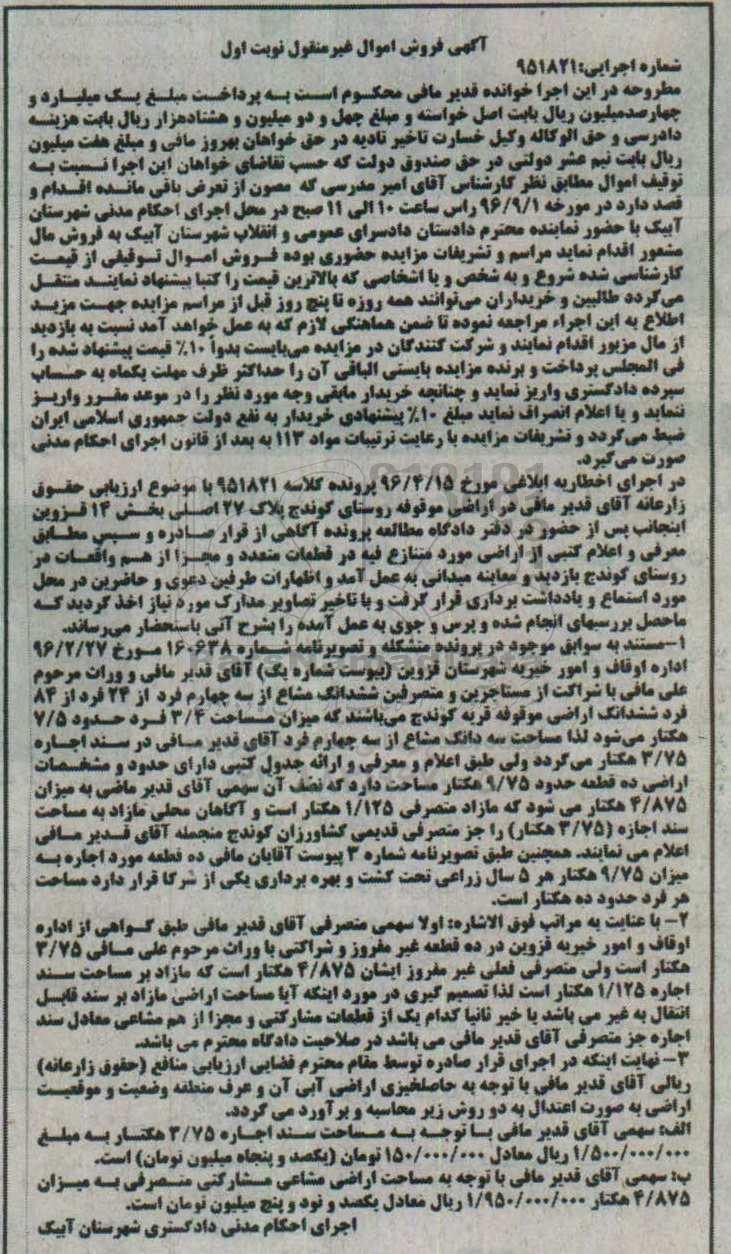 آگهی فروش اموال غیرمنقول نوبت اول
شماره اجرایی:۹۵۱۸۲۱
مطروحه در این اجرا خوانده قدیر مافی محکوم است به پرداخت مبلغ یک میلیارد و
چهارصدمیلیون ریال بابت اصل خواسته و مبلغ چهل و دو میلیون و هشتادهزار ریال بابت هزینه
دادرسی و حق الوکاله وکیل خسارت تاخیر تادیه در حق خواهان بهروز مافی و مبلغ هفت میلیون
ریال بابت نیم عشر دولتی در حق صندوق دولت که حسب تقاضای خواهان این اجرا نسبت به
توقیف اموال مطابق نظر کارشناس آقای امیر مدرسی که مصون از تعرض باقی مانده اقدام و
قصد دارد در مورخه ۹۶/۹/۱ راس ساعت ۱۰ الی ۱۱ صبح در محل اجرای احکام مدنی شهرستان
آبیک با حضور نماینده محترم دادستان دادسرای عمومی و انقلاب شهرستان آبیک به فروش مال
مشعور اقدام نماید مراسم و تشریفات مزایده حضوری بوده فروش اموال توقیفی از قیمت
کارشناسی شده شروع و به شخص و یا اشخاصی که بالاترین قیمت را کتبا پیشنهاد نمایند منتقل
می‌گردد طالبین و خریداران می‌توانند همه روزه تا پنج روز قبل از مراسم مزایده جهت مزید
اطلاع به این اجراء مراجعه نموده تا ضمن هماهنگی لازم که به عمل خواهد آمد نسبت به بازدید
از مال مزبور اقدام نمایند و شرکت کنندگان در مزایده می‌بایست بدوا ۱۰٪ قیمت پیشنهاد شده را
فی المجلس پرداخت و برنده مزایده بایستی الباقی آن را حداکثر ظرف مهلت یکماه به حساب
سپرده دادگستری واریز نماید و چنانچه خریدار مابقی وجه مورد نظر را در موعد مقرر واریز
ننماید و یا اعلام انصراف نماید مبلغ ۱۰٪ پیشنهادی خریدار به نفع دولت جمهوری اسلامی ایران
ضبط می‌گردد و تشریفات مزایده با رعایت ترتیبات مواد ۱۱۳ به بعد از قانون اجرای احکام مدنی
صورت می‌گیرد.
در اجرای اخطاریه ابلاغی مورخ ۹۶/۴/۱۵ پرونده کلاسه ۹۵۱۸۲۱ با موضوع ارزیابی حقوق
زارعانه آقای قدیر مافی در اراضی موقوفه روستای کوندج پلاک ۲۷ اصلی بخش ۱۴ قزوین
اینجانب پس از حضور در دفتر دادگاه مطالعه پرونده آگاهی از قرار صادره و سپس مطابق
معرفی و اعلام کتبی از اراضی مورد متنازع فیه در قطعات متعدد و مجزا از هم واقعات در
روستای کوندج بازدید و معاینه میدانی به عمل آمد و اظهارات طرفین دعوی و حاضرین در محل
مورد استماع و یادداشت برداری قرار گرفت و با تاخیر تصاویر مدارک مورد نیاز اخذ گردید که
ماحصل بررسیهای انجام شده و پرس و جوی به عمل آمده را بشرح آتی باستحضار می‌رساند.
۱-مستند به سوابق موجود در پرونده متشکله و تصویرنامه شماره ۱۶۰۶۳۸ مورخ ۹۶/۲/۲۷
اداره اوقاف و امور خیریه شهرستان قزوین (پیوست شماره یک) آقای قدیر مافی و وراث مرحوم
علی مافی با شراکت از مستاجرین و متصرفین ششدانگ مشاع از سه چهارم فرد از ۲۴ فرد از ۸۴
فرد ششدانگ اراضی موقوفه قریه کوندج می‌باشند که میزان مساحت ۳/۴ فرد حدود ۷/۵
هکتار می‌شود لذا مساحت سه دانگ مشاع از سه چهارم فرد آقای قدیر مافی در سند اجاره
۳/۷۵ هکتار می‌گردد ولی طبق اعلام و معرفی و ارائه جدول کتبی دارای حدود و مشخصات
اراضی ده قطعه حدود ۹/۷۵ هکتار مساحت دارد که نصف آن سهمی آقای قدیر ماضی به میزان
۴/۸۷۵ هکتار می شود که مازاد متصرفی ۱/۱۲۵ هکتار است و آگاهان محلی مازاد به مساحت
سند اجازه (۳/۷۵ هکتار) را جز متصرفی قدیمی کشاورزان کوندج منجمله آقای قدیر مافی
اعلام می نمایند. همچنین طبق تصویرنامه شماره ۳ پیوست آقایان مافی ده قطعه مورد اجاره به
میزان ۹/۷۵ هکتار هر ۵ سال زراعی تحت کشت و بهره برداری یکی از شرکا قرار دارد مساحت
هر فرد حدود ده هکتار است.
۲- با عنایت به مراتب فوق الاشاره: اولا سهمی متصرفی آقای قدیر مافی طبق گواهی از اداره
اوقاف و امور خیریه قزوین در ده قطعه غیر مفروز و شراکتی با وراث مرحوم علی مافی ۳/۷۵
هکتار است ولی متصرفی فعلی غیر مفروز ایشان ۴/۸۷۵ هکتار است که مازاد بر مساحت سند
اجاره ۱/۱۲۵ هکتار است لذا تصمیم گیری در مورد اینکه آیا مساحت اراضی مازاد بر سند قابل
انتقال به غیر می باشد یا خیر ثانیا کدام یک از قطعات مشارکتی و مجزا از هم مشاعی معادل سند
اجاره جز متصرفی آقای قدیر مافی می باشد در صلاحیت دادگاه محترم می باشد.
۳- نهایت اینکه در اجرای قرار صادره توسط مقام محترم قضایی ارزیابی منافع (حقوق زارعانه)
ریالی آقای قدیر مافی با توجه به حاصلخیزی اراضی آبی آن و عرف منطقه وضعیت و موقعیت
اراضی به صورت اعتدال به دو روش زیر محاسبه و برآورد می گردد.
الف: سهمی آقای قدیر مافی با توجه به مساحت سند اجاره ۳/۷۵ هکتار به مبلغ
۱/۵۰۰/۰۰۰/۰۰۰ ریال معادل ۱۵۰/۰۰۰/۰۰۰ تومان (یکصد و پنجاه میلیون تومان) است.
ب: سهمی آقای قدیر مافی با توجه به مساحت اراضی مشاعی مشارکتی متصرفی به میزان
۴/۸۷۵ هکتار ۱/۹۵۰/۰۰۰/۰۰۰ ریال معادل یکصد و نود و پنج میلیون تومان است.
اجرای احکام مدنی دادگستری شهرستان آبیک